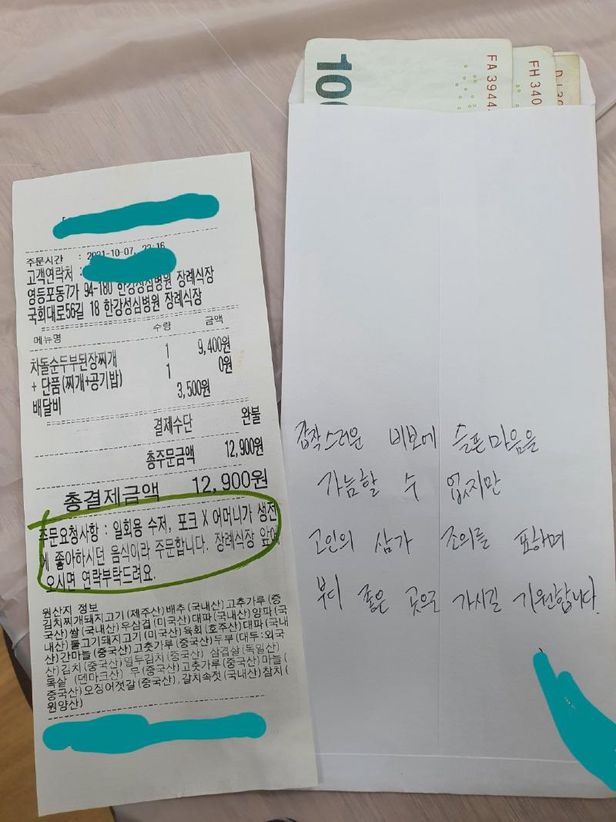 주문시간 : 2021-10-07, 22:16
고객연락처 :
영등포동7가 94-180 한강성심병원 장례식장
국회대로56길 18 한강성심병원 장례식장
메뉴명 수량 금액
차돌순두부된장찌개 1 9,400원
+ 단품(찌개+공기밥) 1 0원
배달비 3,500원
결제수단 완불
총주문금액 12,900원
총결제금액 12,900원
주문요청사항 : 일회용 수저, 포크 X 어머니가 생전
에 좋아하시던 음식이라 주문합니다. 장례식장 앞에
오시면 연락부탁드려요.
원산지 정보
김치찌개돼지고기(제주산) 배추(국내산) 고추가루(중
국산) 쌀(국내산) 우삼겹(미국산) 대파(국내산) 양파(국
내산) 불고기돼지고기(미국산) 육회(호주산) 대파(국내
산) 간마늘(중국산) 고춧가루(중국산) 두부(대두:외국
산) 김치(중국산) 열무김치(중국산) 삼겹살(독일산)
목살 (덴마크산) 무(중국산) 고춧가루(중국산) 마늘(
중국산) 오징어젓갈(중국산), 갈치속젓(국내산) 참치(
원양산)
100
FA 3944
FH 340
갑작스러운 비보에 슬픈마음을
가늠할 수 없지만
고인의 삼가 조의를 표하며
부디 좋은 곳으로 가시길 기원합니다.